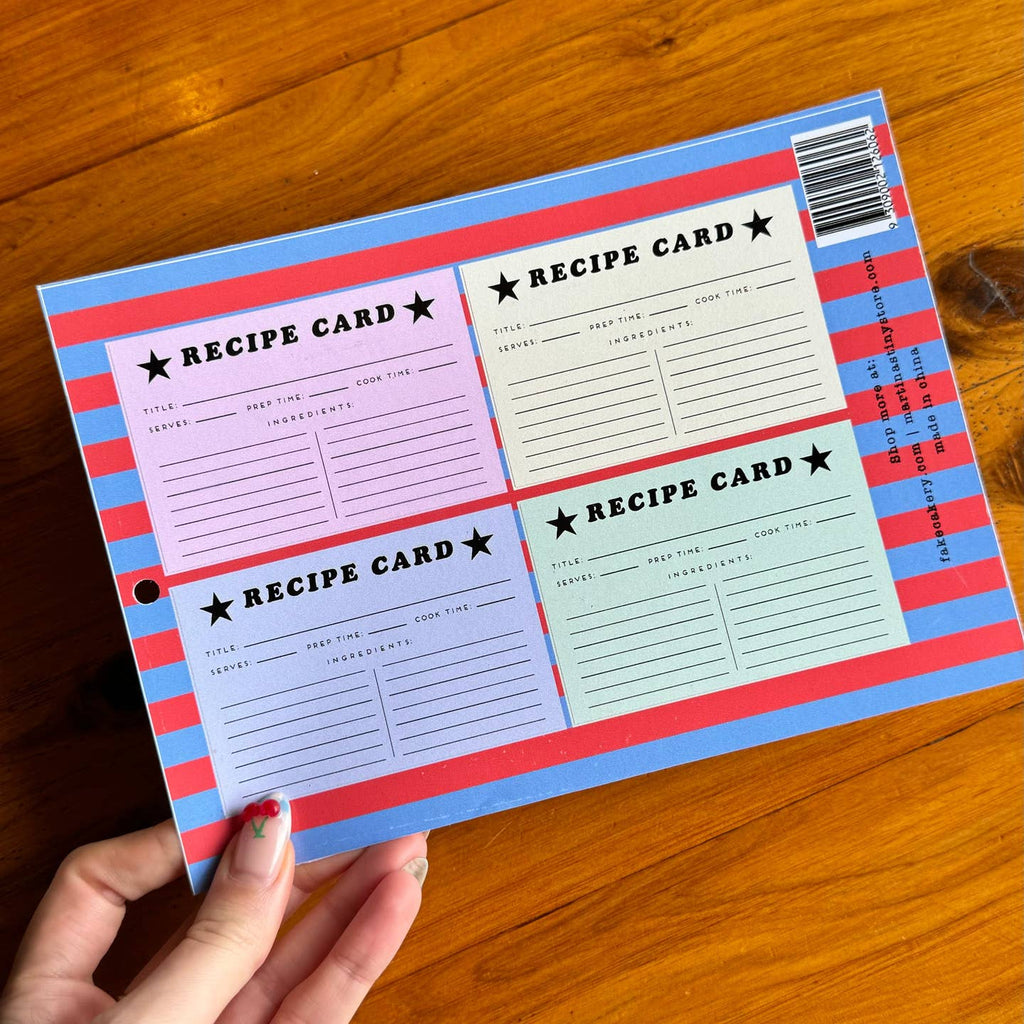 RECIPE CARD
TITLE:
SERVES: PREP TIME: COOK TIME:
INGREDIENTS:
RECIPE CARD
TITLE:
SERVES: PREP TIME: COOK TIME:
INGREDIENTS:
RECIPE CARD
TITLE:
SERVES: PREP TIME: COOK TIME:
INGREDIENTS:
RECIPE CARD
TITLE:
SERVES: PREP TIME: COOK TIME:
INGREDIENTS:
9 309002 126062
Shop more at:
fakecakery.com | martinastinystore.com
made in china